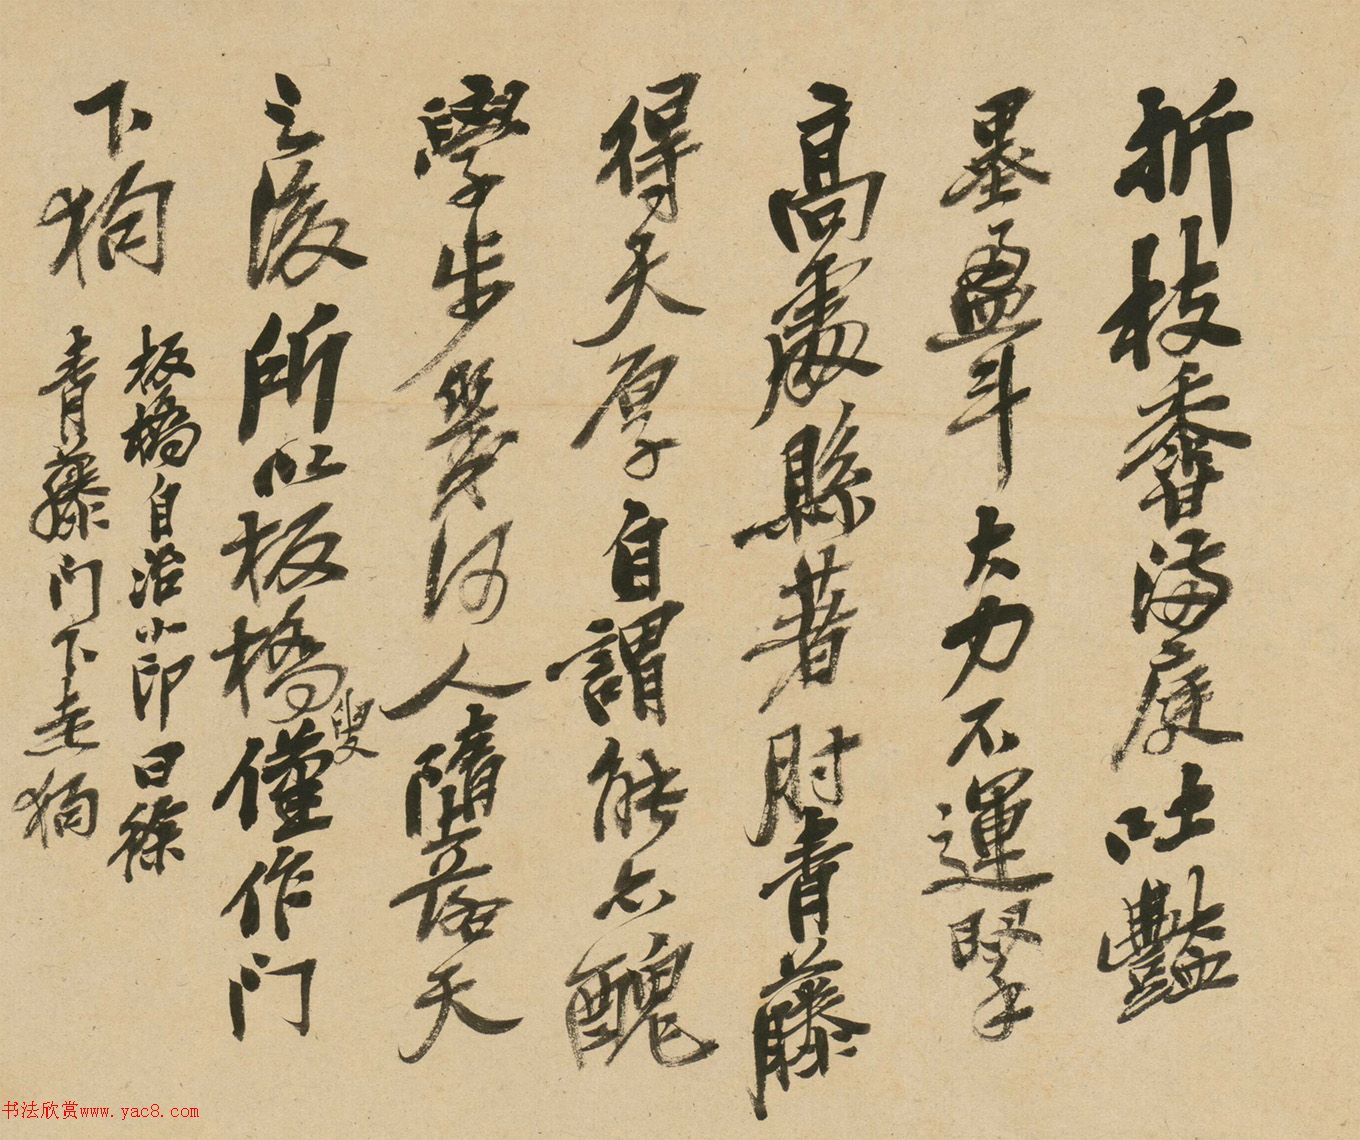 折枝香滿庭吐豔
墨盈斗大力不運擘
高處縣著肘青藤
得天厚自謂能亦醜
學步幾何人墮落天
之後所以板橋叟僅作門
下狗
板橋自治小印曰徐
青藤門下走狗
书法欣赏www.yac8.com